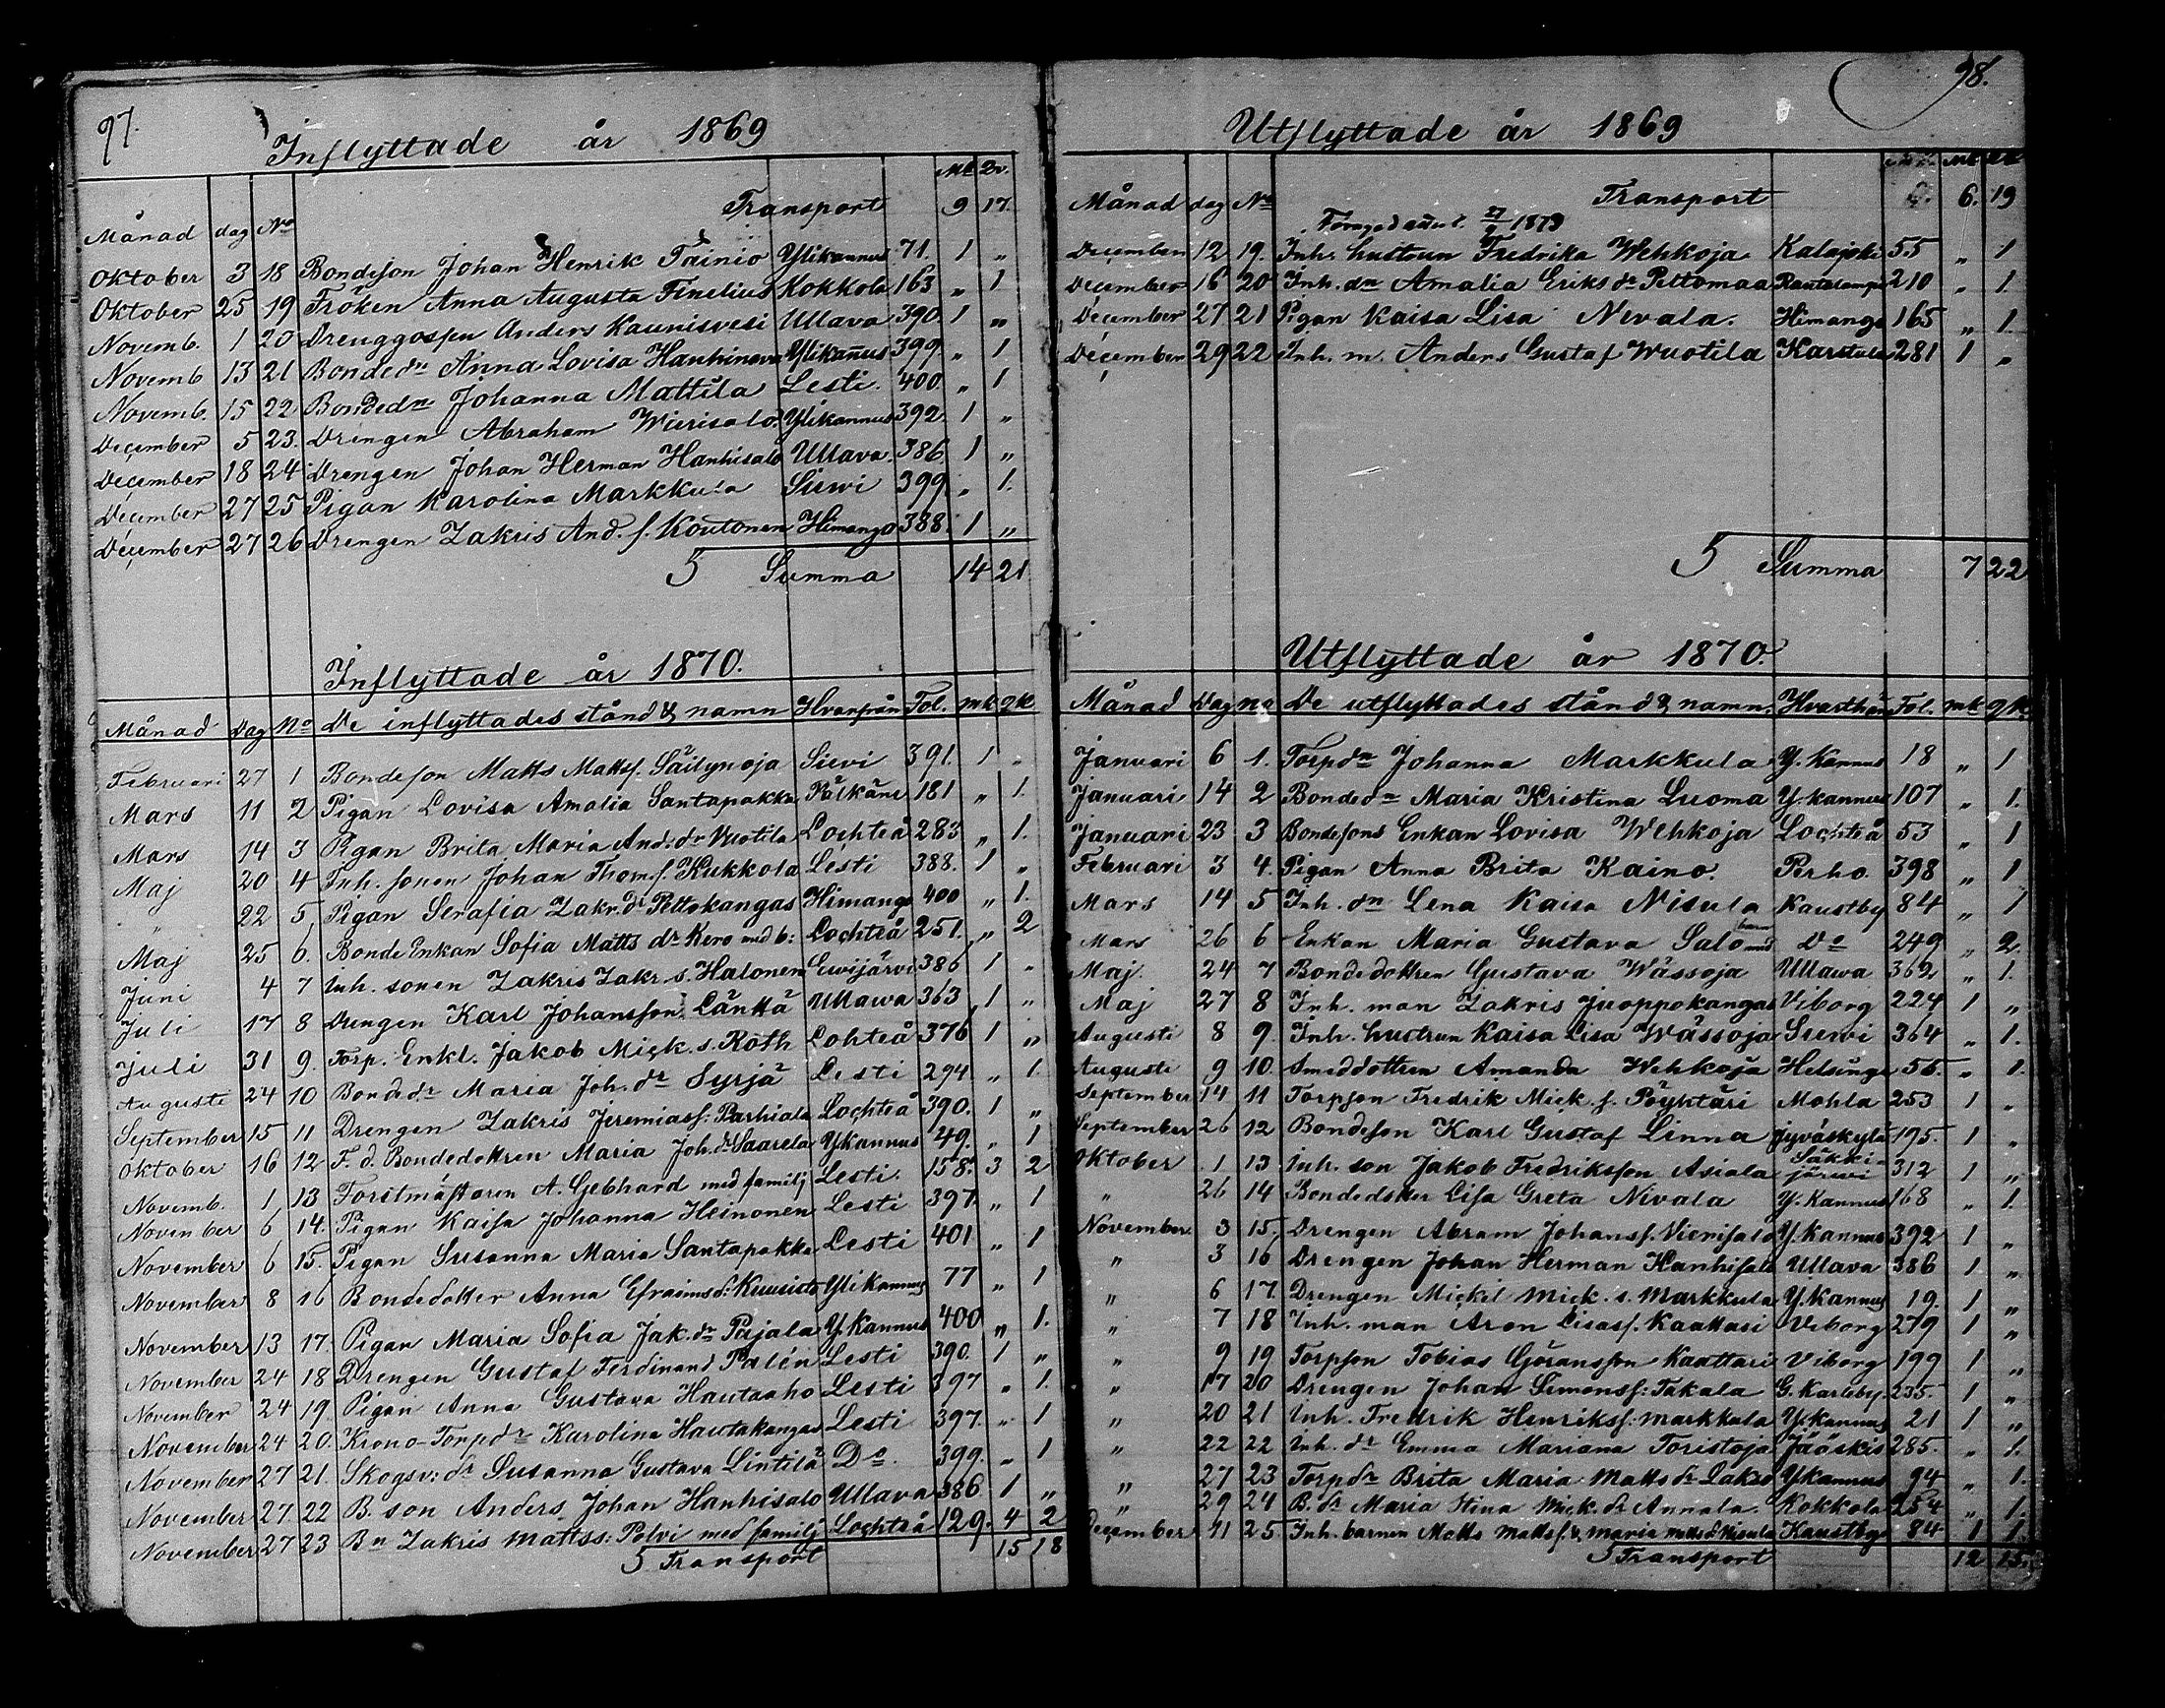 97.
Inflyttade år 1869
Mk Qv.
Månad dag No Transport 9 17.
Oktober 3 18 Bondeson Johan Henrik Tainio Ylikannus 71. 1 "
Oktober 25 19 Fröken Anna Augusta Finelius Kokkola 163 " 1
Novemb. 1 20 Drenggossen Anders Kaunisvesi Ullava 390. 1 "
Novemb 13 21 Bondedn Anna Lovisa Hanhineva Ylikañus 399. " 1
Novemb. 15 22 Bondedn Johanna Mattila Lesti. 400. " 1
December 5 23. Drengen Abraham Wierisalo Ylikannus 392. 1 "
December 18 24 Drengen Johan Herman Hanhisalo Ullava. 386 1 "
December 27 25 Pigan Karolina Markkula Siewi 399. " 1.
December 27 26 Drengen Zakris And. s. Koutonen Himango 388. 1 "
S Summa 14 21
Inflyttade år 1870.
Månad Dag No De inflyttades stånd & namn Hvarifrån Fol. mk qk
Februari 27 1 Bondeson Matts Mattsf. Säilynoja Sievi 391. 1 "
Mars 11 2 Pigan Lovisa Amalia Santapakka Pälkäne 181 " 1.
Mars 14 3 Pigan Brita Maria And: dr Wuotila Lochteå 283 " 1.
Maj 20 4 Inh. sonen Johan Thom. s. Kukkola Lesti 388. 1 "
" 22 5 Pigan Serafia Zakr. dr Peltokangas Himango 400 " 1.
Maj 25 6. Bonde Enkan Sofia Matts dr Kero med b: Lochteå 251. " 2
Juni 4 7 Inh. sonen Zakris Zakr. s. Halonen Ewijärvi 386 1 "
Juli 17 8 Drengen Karl Johansson Länttä Ullawa 363 1 "
Juli 31 9. Torp. Enkl. Jakob Mick. s. Roth Lohteå 376 1 "
Augusti 24 10 Bondedr Maria Joh. dr Syrjä Lesti 294. " 1.
September 15 11 Drengen Zakris Jeremiass. Parhiala Lochteå 390. 1 "
Oktober 16 12 F. d. Bondedottren Maria Joh. dr Saarela Ykannus 49. " 1
Novemb. 1 13 Forstmästaren A. Gebhard med familj Lesti. 158. 3 2
November 6 14. Pigan Kaisa Johanna Heinonen Lesti 397. " 1
November 6 15. Pigan Susanna Maria Santapakka Lesti 401 " 1
November 8 16 Bondedotter Anna Efraims d: Kuusisto Ylikannus 77 " 1
November 13 17. Pigan Maria Sofia Jak. dr Pajala Y. Kannus 400 " 1.
November 24 18 Drengen Gustaf Ferdinand Palén Lesti 390. 1 "
November 24 19. Pigan Anna Gustava Hautaaho Lesti 397 " 1.
November 24 20. Krono-Torpdr Karolina Hautakangas Lesti 397. " 1
November 27 21. Skogsv: dr Susanna Gustava Lintilä Do. 399. " 1
November 27 22 B. son Anders Johan Hanhisalo Ullava 386 1 "
November 27 23 Bn Zakris Mattss: Polvi med familj Lochteå 129. 4 2
S Transport 15 18
98.
Utflyttade år 1869
Månad dag No Transport 6. 19
1873
December 12 19. Inh. hustrun Fredrika Wehkoja Kalajoki 55 " 1
December 16 20 Inh. dn Amalia Eriks dr Peltomaa Rautalampi 210 " 1.
December 27 21 Pigan Kaisa Lisa Nevala. Himango 165 " 1
December 29 22 Inh. m. Anders Gustaf Wuotila Karstula 281 1 "
S Summa 7 22
Utflyttade år 1870.
Månad Dag no De utflyttades stånd & namn. Hvarthän Fol. mk qk.
Januari 6 1. Torpdn Johanna Markkula Y. Kannus 18 " 1
Januari 14 2 Bondedn Maria Kristina Luoma Y. kannus 107 " 1.
Januari 23 3 Bondesons Enkan Lovisa Wehkoja Lochteå 53 " 1
Februari 3 4. Pigan Anna Brita Kaino. Perho. 398 " 1
Mars 14 5 Inh. dn Lena Kaisa Nisula Kaustby 84 " 1
Mars 26 6 Enkan Maria Gustava Salo med barn Do 249 " 2.
Maj. 24 7 Bondedottren Gustava Wässoja Ullawa 362 " 1.
Maj 27 8 Inh. man Zakris Juoppokangas Viborg 224 1 "
Augusti 8 9. Inh. hustrun Kaisa Lisa Wässoja Siewi 364 " 1.
Augusti 9 10. Smeddottren Amanda Wehkoja Helsinge 55. " 1.
September 14 11 Torpson Fredrik Mick. s. Pöyktäri Mohla 253 1 "
September 26 12 Bondeson Karl Gustaf Linna Jyväskylä 195. 1 "
Oktober 1 13 Inh. son Jakob Fredriksson Asiala Säkkijärwi 312 1 "
" 26 14 Bondedotter Lisa Greta Nivala Y. Kannus 168 " 1.
November 3 15. Drengen Abram Johanss. Vierisalo Y. Kannus 392 1 "
" 3 16 Drengen Johan Herman Hanhisalo Ullava 386 1 "
" 6 17. Drengen Mickel Mick. s. Markkula Y. Kannus 19. 1 "
" 7 18 Inh. man Aron Lisass. Kaattari Viborg 279 1 "
" 9 19 Torpson Tobias Göransson Kaattari Viborg 199 1 "
" 17 20 Drengen Johan Simonss: Takala G. Karleby 235. 1 "
" 20 21 Inh. Fredrik Henrikss: Markkula Y. Kannus 21 1 "
" 22 22 Inh. dr Emma Mariana Toristoja Jääskis 285. " 1.
" 27 23 Torpdr Brita Maria Matts dr Lakso Ykannus 94 " 1.
" 29 24 B. dr Maria Stina Mick. dr Annala. Kokkola 254 " 1.
December 11 25. Inh. barnen Matts Mattss. & Maria Matts d Nisula Kaustby 84 1 1.
S Transport 12 15.